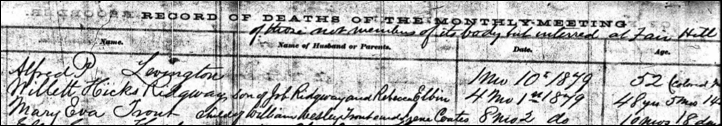 RECORD OF DEATHS OF THE MONTHLY-MEETING
of those not members of its body but interred at Fair Hill
Name. Name of Husband or Parents. Date. Age.
Alfred P. Levington 1 Mo 10th 1879 52 (Colored
Willett Hicks Ridgway, son of Job Ridgway and Rebecca Elbin 4 Mo 1st 1879 48 yrs 5 mos 14
Mary Eva Trout child of William Wesley Trout and Irene Coates 8 mo 2 do 10 mos 18 da